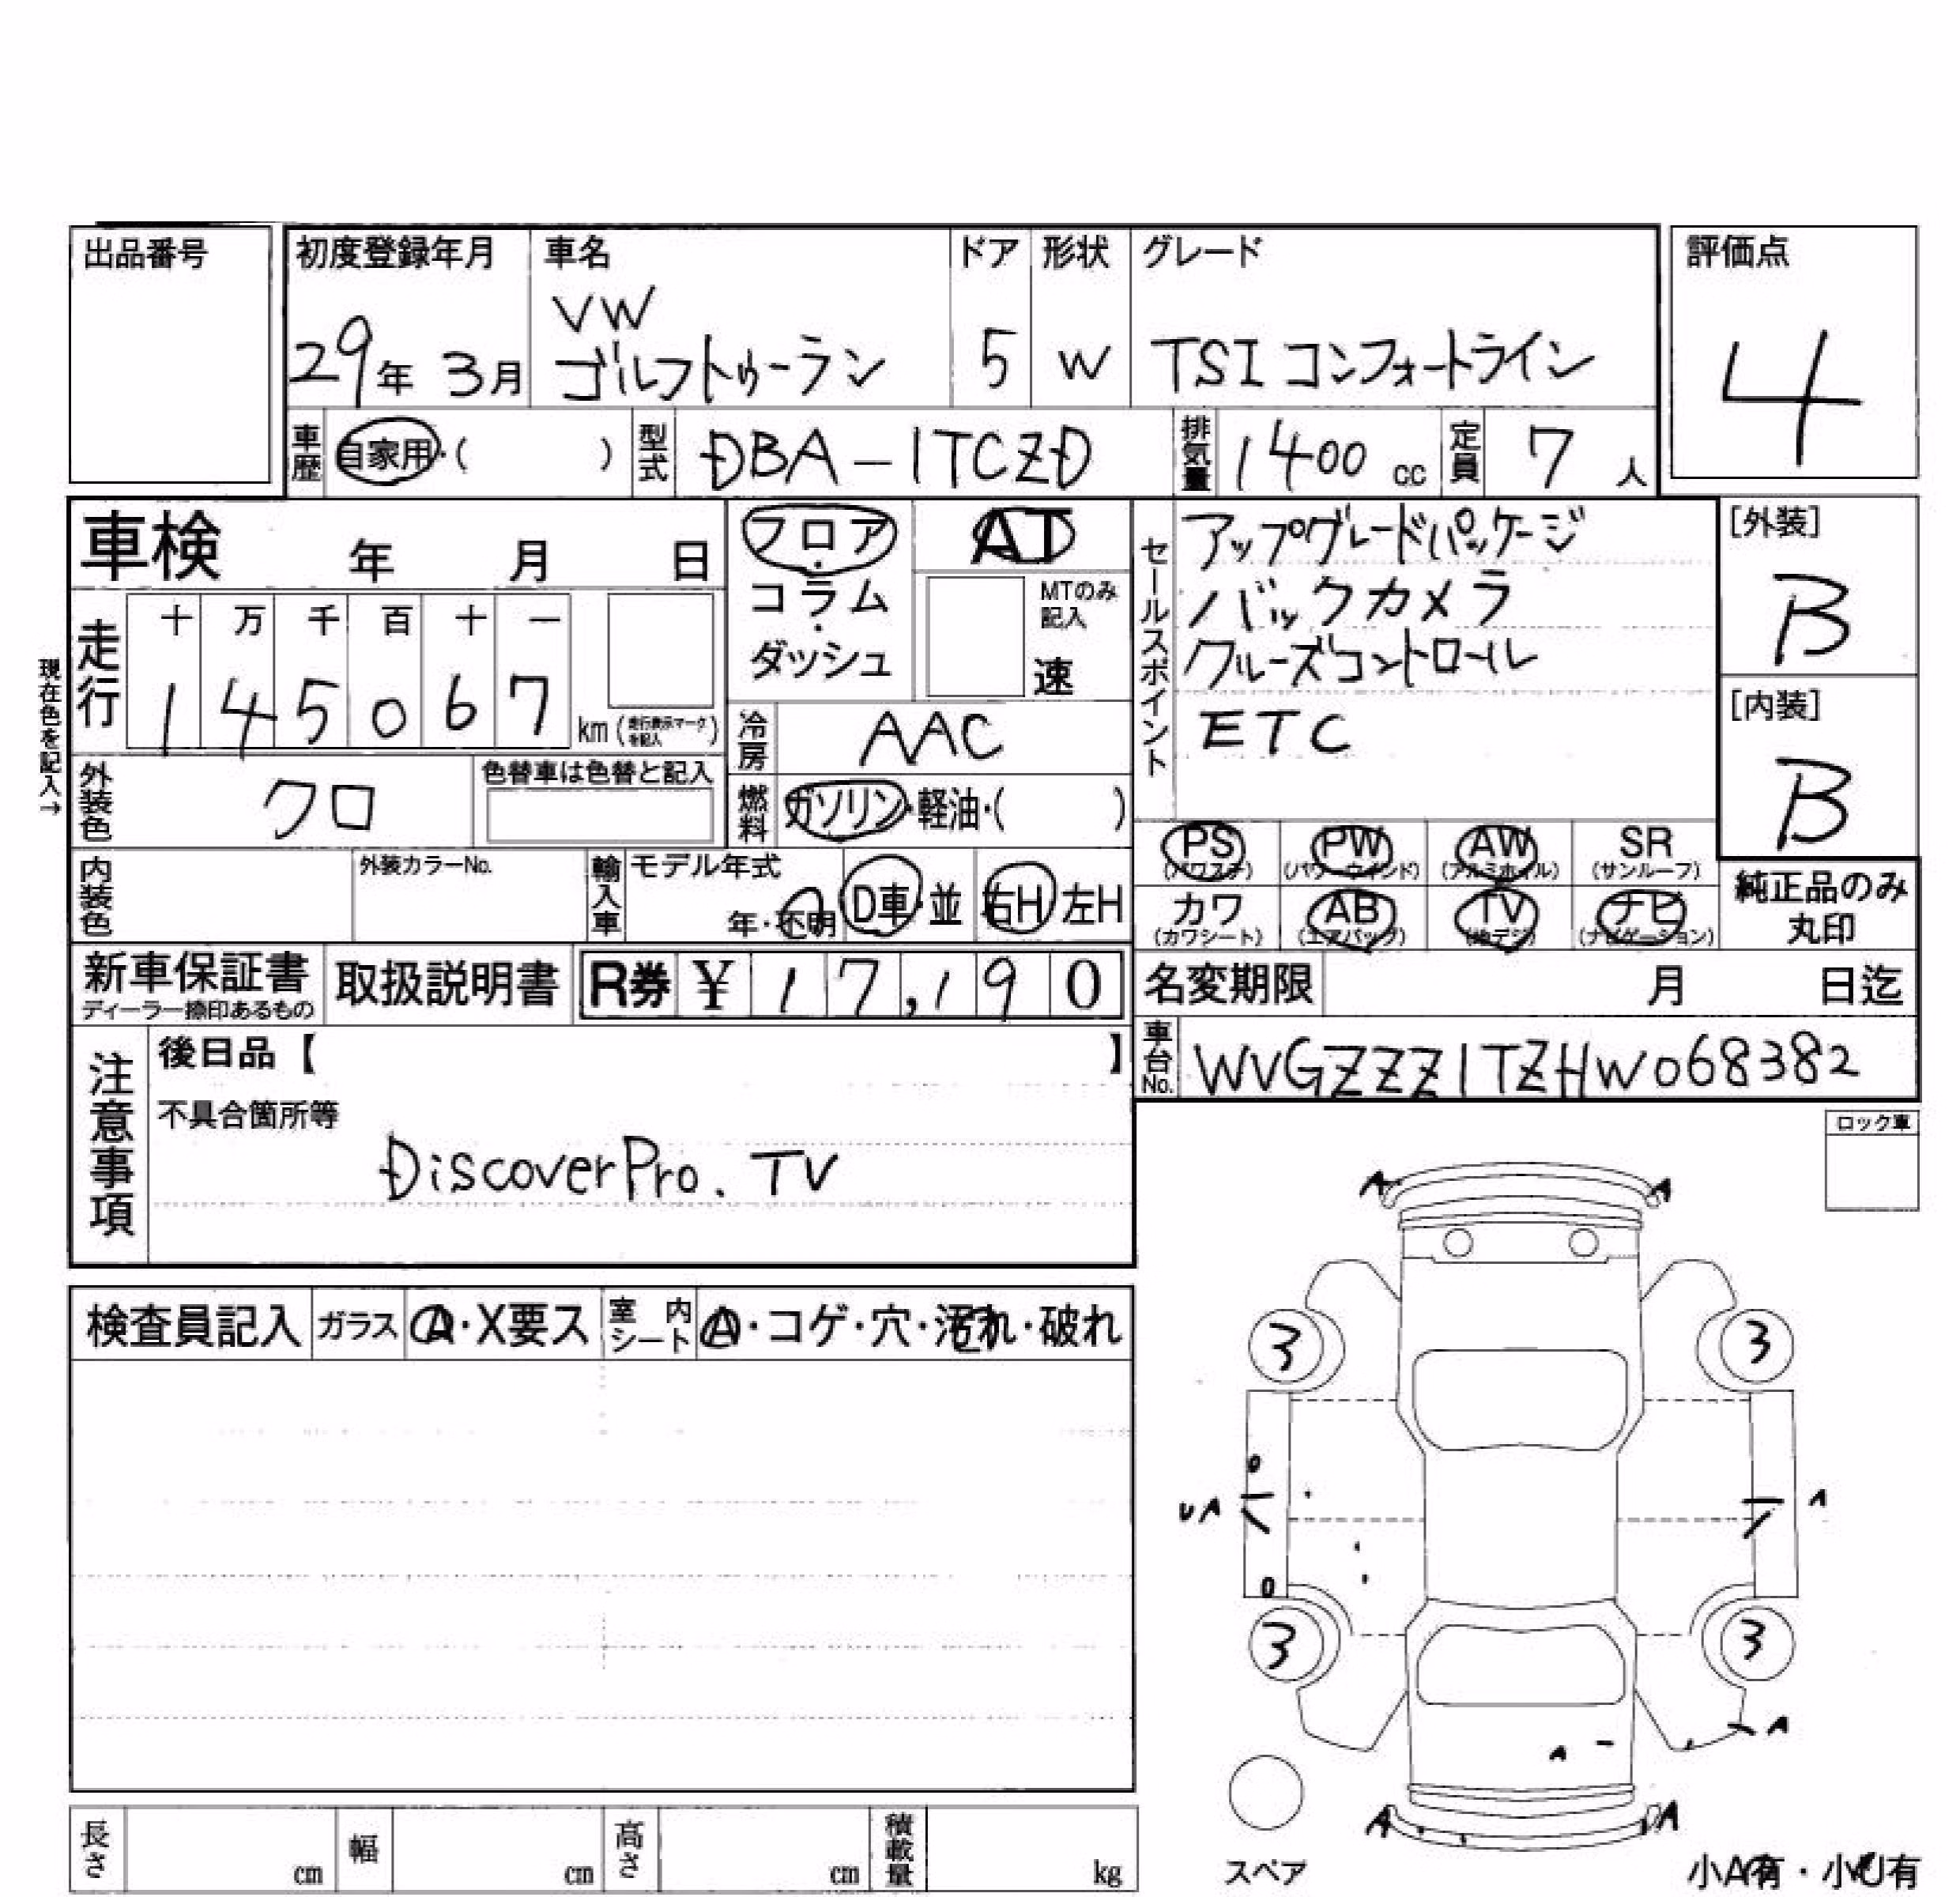 出品番号
初度登録年月 車名 ドア 形状 グレード 評価点
VW
29年 3月 ゴルフトゥーラン 5 W TSI コンフォートライン 4
車歴 自家用・( ) 型式 DBA-1TCZD 排気量 1400 cc 定員 7 人
車検 年 月 日
フロア・コラム・ダッシュ
AT
MTのみ記入
速
走行 十 万 千 百 十 一
1 4 5 0 6 7 km (走行表示マークを記入)
現在色を記入→
冷房 AAC
外装色 クロ 色替車は色替と記入
燃料 ガソリン・軽油・( )
内装色 外装カラーNo. 輸入車 モデル年式
年・不明 D車・並 右H 左H
セールスポイント
アップグレードパッケージ
バックカメラ
クルーズコントロール
ETC
[外装]
B
[内装]
B
PS PW AW SR
(パワステ) (パワーウインド) (アルミホイル) (サンルーフ)
カワ AB TV ナビ
(カワシート) (エアバッグ) (地デジ) (ナビゲーション)
純正品のみ
丸印
新車保証書 取扱説明書 R券 ¥ 17,190
ディーラー捺印あるもの
名変期限 月 日迄
車台No. WVGZZZ1TZHW068382
注意事項
後日品【 】
不具合箇所等
DiscoverPro. TV
ロック車
検査員記入 ガラス A・X要ス 室内シート A・コゲ・穴・汚れ・破れ
A A
3 3
UA A
3 3
A
A
A A
スペア
小A有・小U有
長さ cm 幅 cm 高さ cm 積載量 kg